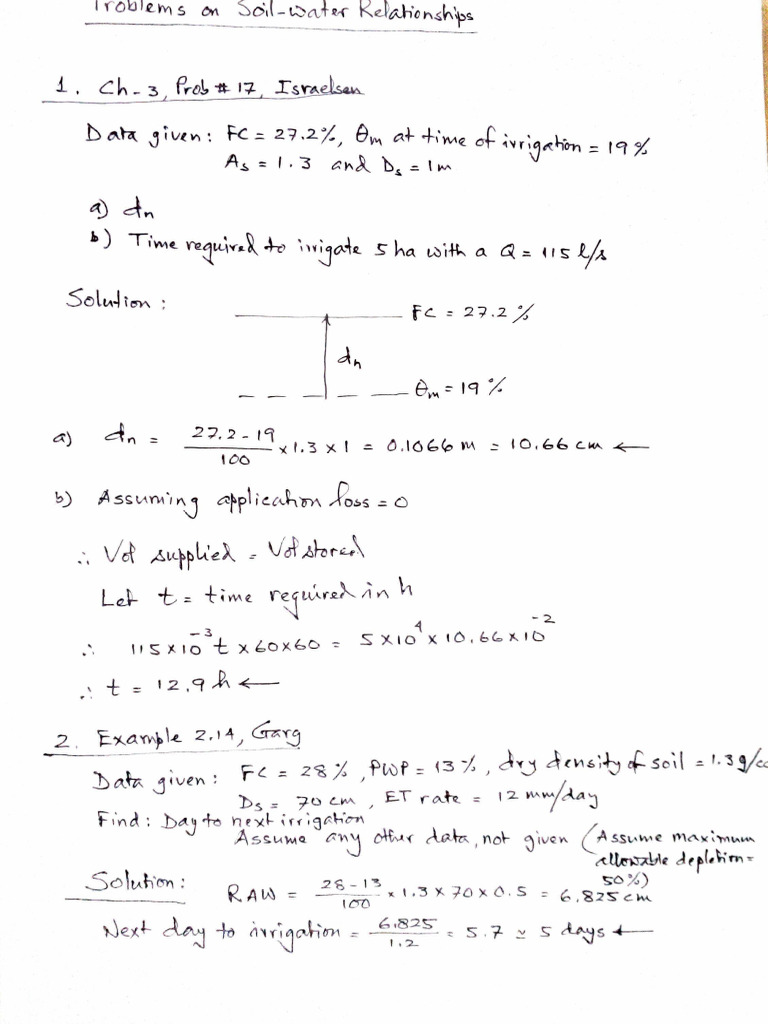 Problems on Soil-water Relationships
1. Ch-3, Prob # 17, Israelsen
Data given: FC = 27.2%, θm at time of irrigation = 19%
As = 1.3 and Ds = 1m
a) dn
b) Time required to irrigate 5 ha with a Q = 115 l/s
Solution:
FC = 27.2%
dn
θm = 19%
a) dn = (27.2-19)/100 x 1.3 x 1 = 0.1066 m = 10.66 cm ←
b) Assuming application loss = 0
∴ Vol supplied = Vol stored
Let t = time required in h
∴ 115x10^-3 t x 60x60 = 5x10^4 x 10.66x10^-2
∴ t = 12.9 h ←
2. Example 2.14, Garg
Data given: FC = 28%, PWP = 13%, dry density of soil = 1.3 g/cc
Ds = 70 cm, ET rate = 12 mm/day
Find: Day to next irrigation
Assume any other data, not given (Assume maximum
allowable depletion =
50%)
Solution: RAW = (28-13)/100 x 1.3 x 70 x 0.5 = 6.825 cm
Next day to irrigation = 6.825/1.2 = 5.7 ≃ 5 days ←